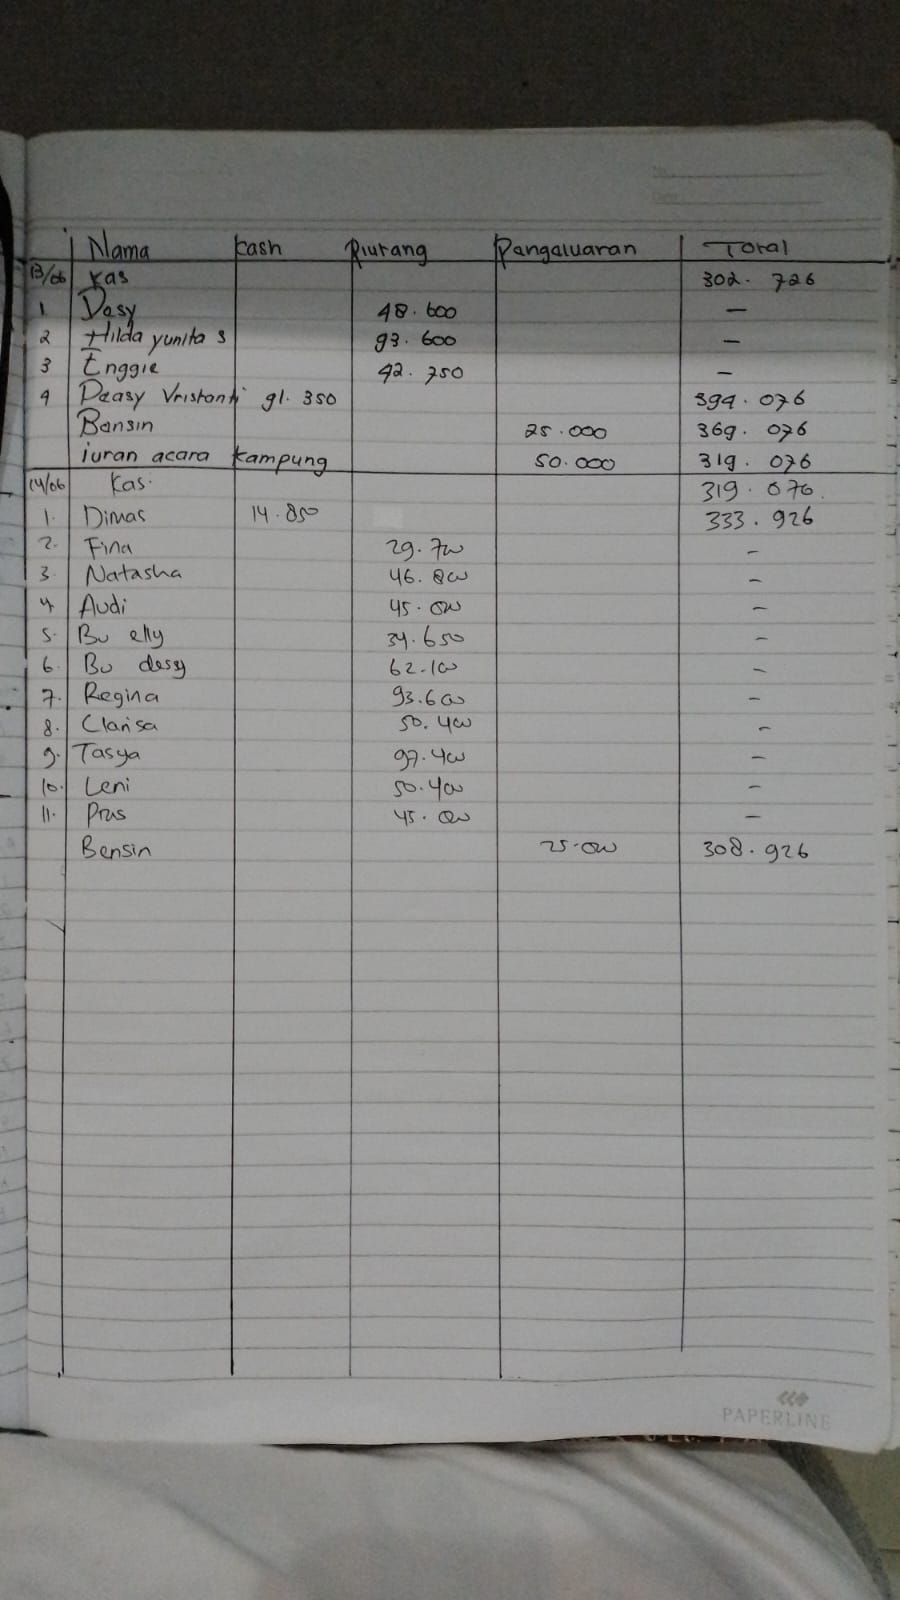 Nama kash Piutang Pangaluaran Total
13/06 kas 302. 726
1 Dasy 48. 600 —
2 Hilda yunita s 93. 600 —
3 Enggie 42. 750 —
4 Deasy Vristanti 91. 350 394. 076
Bansin 25.000 369. 076
iuran acara kampung 50.000 319. 076
14/06 kas. 319. 076.
1. Dimas 14. 850 333. 926
2. Fina 29. 700 -
3. Natasha 46. 800 -
4 Audi 45. 000 -
5. Bu elly 34. 650 -
6. Bu dessy 62. 100 -
7. Regina 93. 600 -
8. Clarisa 50. 400 -
9. Tasya 97. 400 -
10. Leni 50. 400 -
11. Pras 45. 000 -
Bensin 25.000 308. 926
PAPERLINE